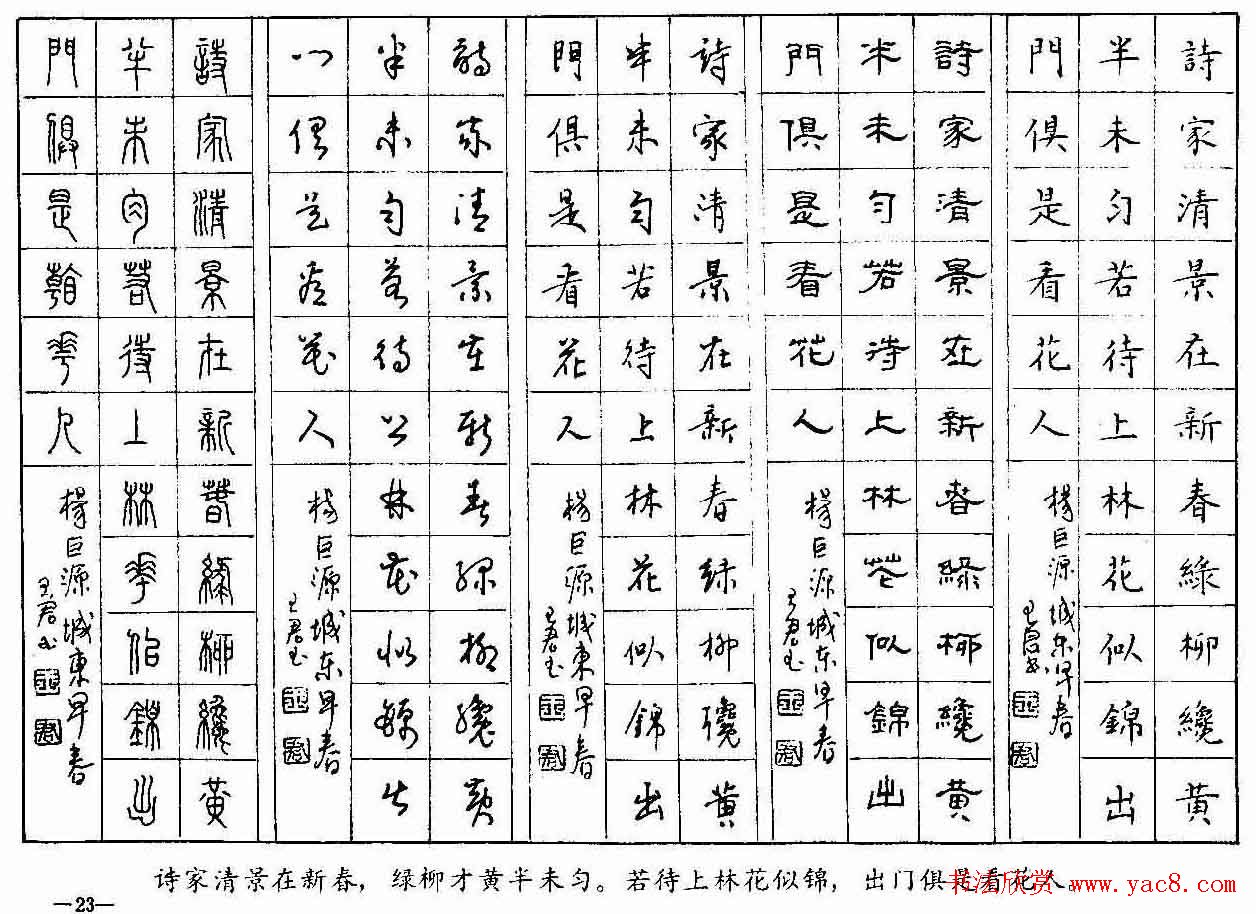 詩家清景在新春綠柳纔黃
半未勻若待上林花似錦出
門俱是看花人
楊巨源城東早春
王君書
詩家清景在新春綠柳纔黃
半未勻若待上林花似錦出
門俱是看花人
楊巨源城东早春
王君書
詩家清景在新春綠柳纔黃
半未勻若待上林花似錦出
門俱是看花人
楊巨源城東早春
王君書
詩家清景在新春綠柳纔黃
半未勻若待上林花似錦出
門俱是看花人
楊巨源城东早春
王君書
詩家清景在新春綠柳纔黃
半未勻若待上林花似錦出
門俱是看花人
楊巨源城東早春
王君書
诗家清景在新春，绿柳才黄半未匀。若待上林花似锦，出门俱是看花人。
书法欣赏 www.yac8.com
—23—